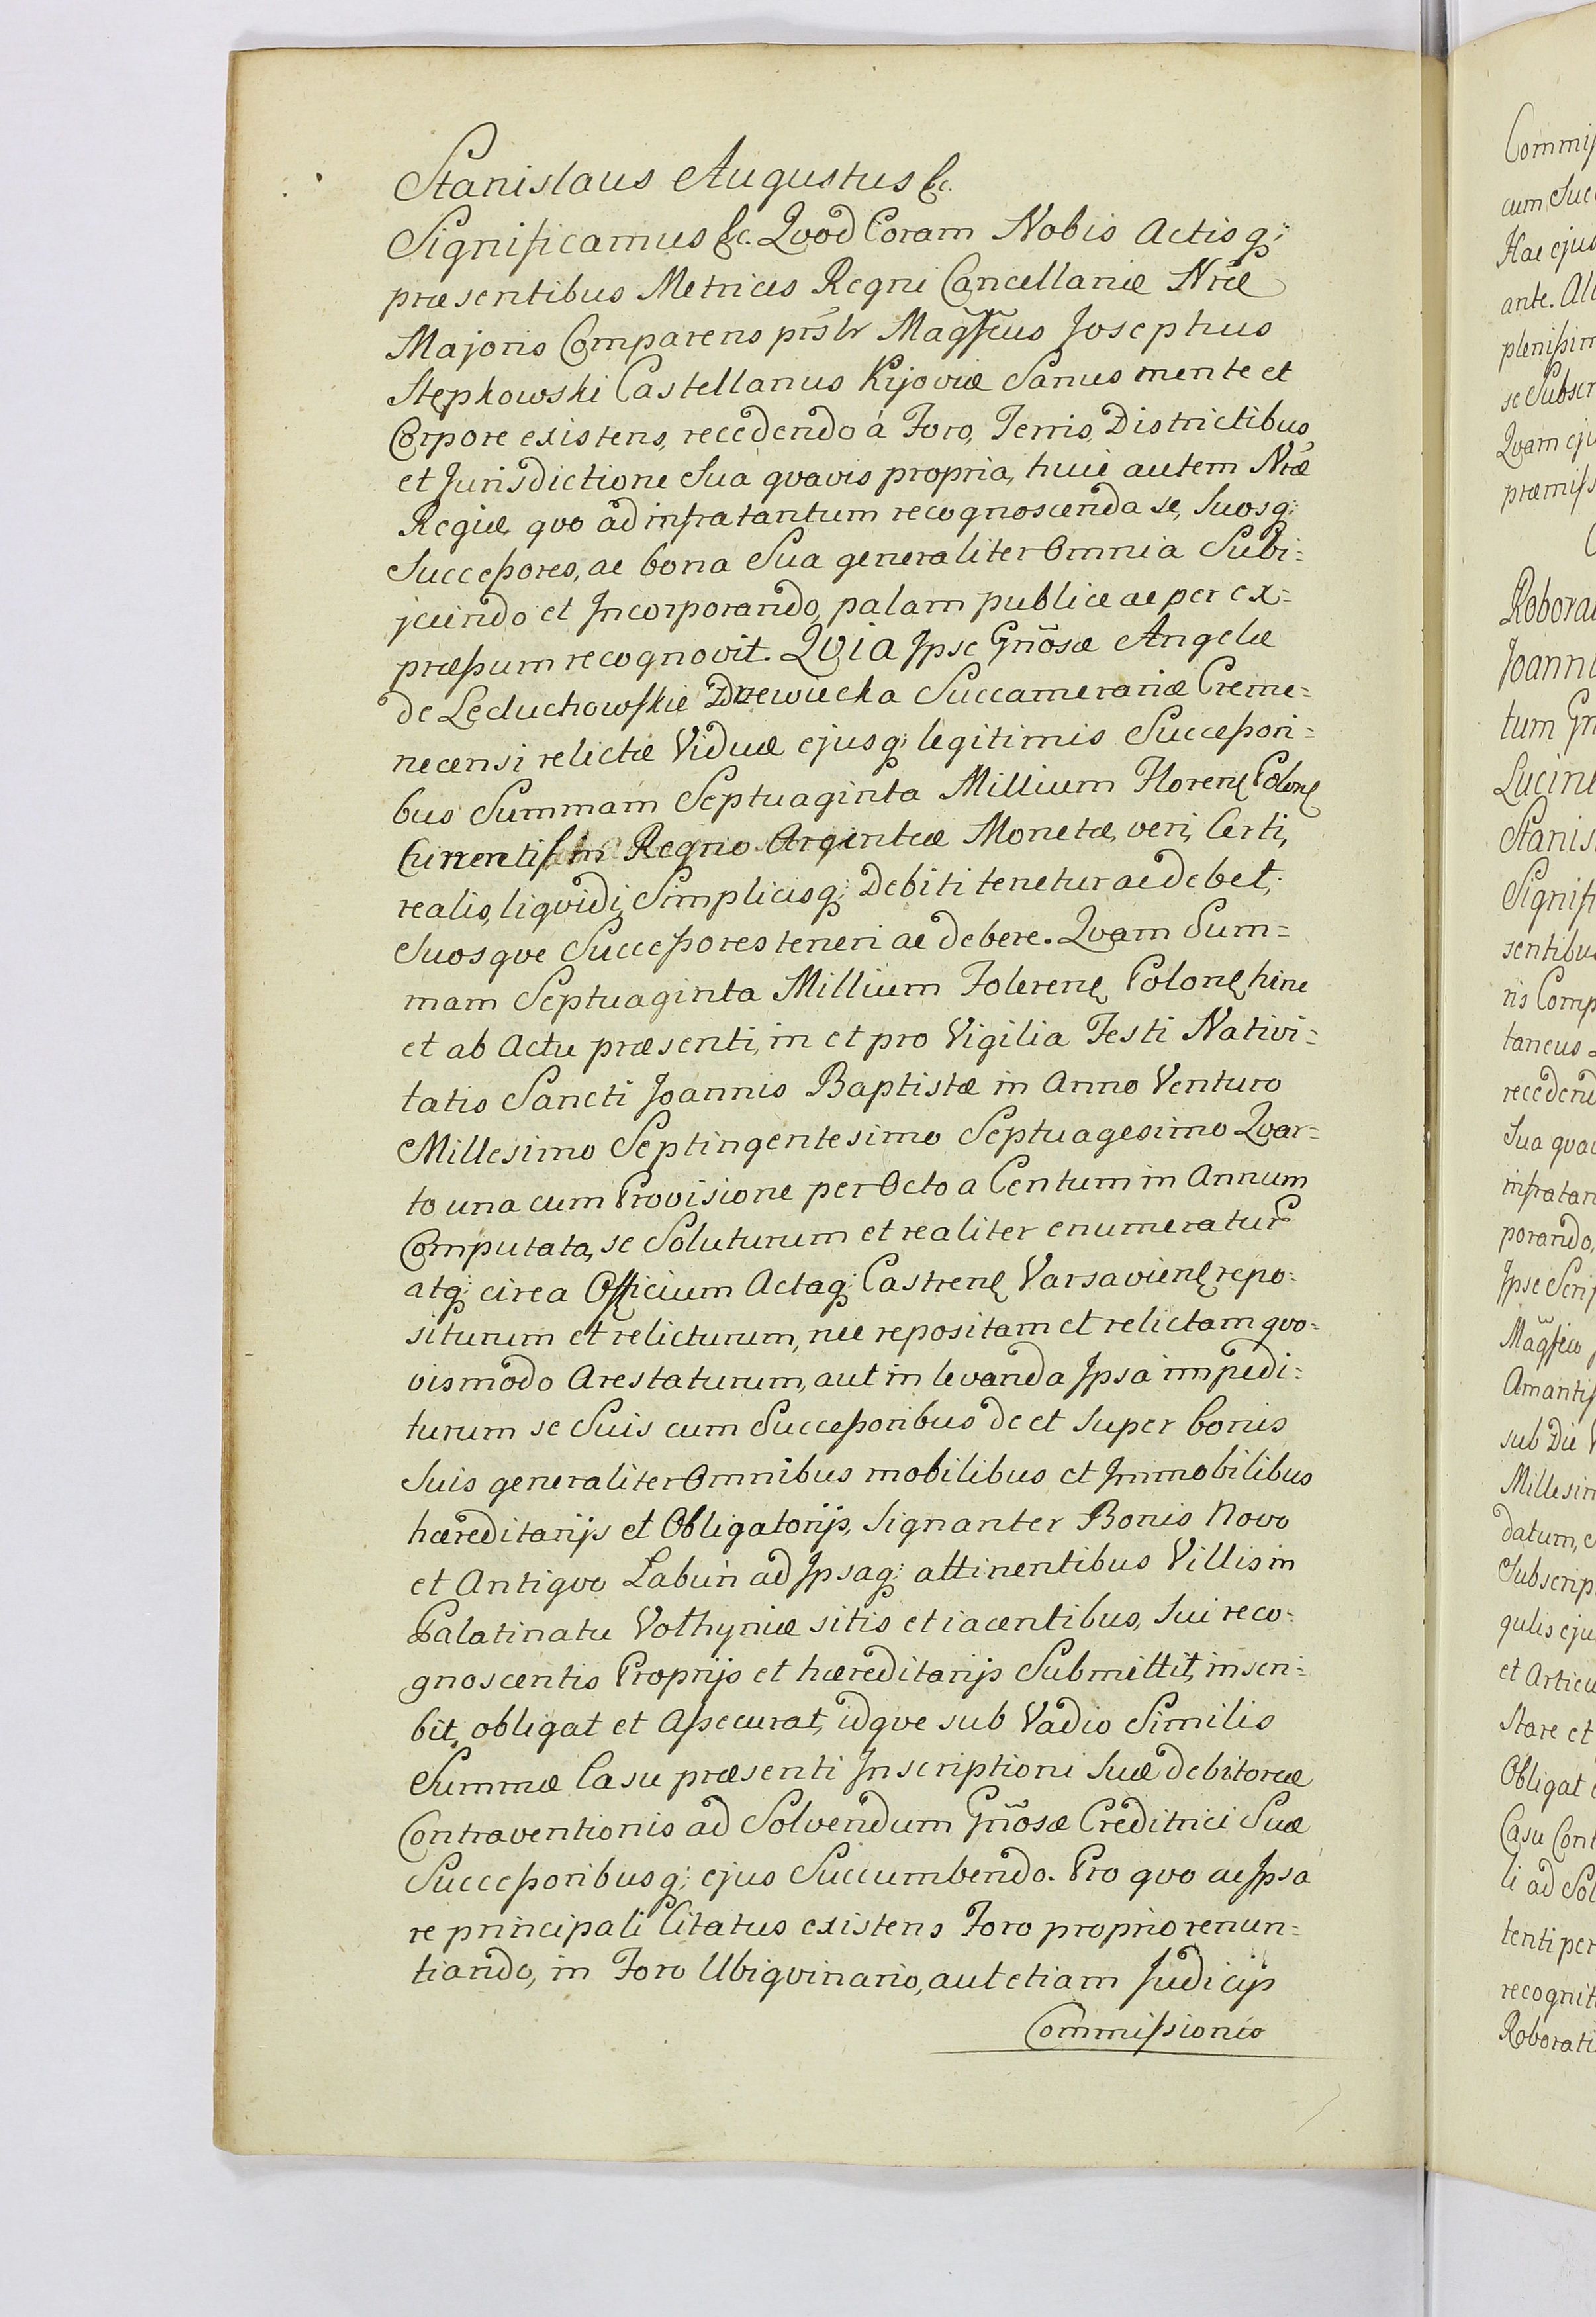 Stanislaus Augustus &c.
Significamus &c. Quod Coram Nobis Actisq;
præsentibus Metrices Regni Cancellariæ Nræ
Majoris Comparens prsltr Magficus Josephus
Stępkowski Castellanus Kijoviæ Sanus mente et
Corpore existens, recedendo à Foro, Terris, Districtibus,
et Jurisdictione Sua quavis propria, huic autem Nræ
Regiæ, quo ad infratantum recognoscenda se, Suosq;
Successores, ac bona Sua generaliter Omnia Subi=
jciendo et Incorporando, palam publice ac per ex=
præssum recognovit. QVIA Ipse Gnosæ Angelæ
de Leduchowskie Drzewiecka Succamerariæ Creme=
necensi relictæ Viduæ ejusq; legitimis Successori=
bus Summam Septuaginta Millium Floren Polon
Currentis in Regno Argenteæ Monetæ, veri, Certi,
realis, liquidi, Simplicisq; Debiti tenetur ac debet,
Suosque Successores teneri ac debere. Quam Sum=
mam Septuaginta Millium Foleren Polon hinc
et ab Actu præsenti, in et pro Vigilia Festi Nativi=
tatis Sancti Joannis Baptistæ in Anno Venturo
Millesimo Septingentesimo Septuagesimo Quar=
to una cum Provisione per Octo a Centum in Annum
Computata, se Soluturum et realiter enumeratur
atq; circa Officium Actaq; Castren Varsavien repo=
siturum et relicturum, nec repositam et relictam quo=
vismodo Arestaturum, aut in levanda Ipsa impedi=
turum se Suis cum Successoribus de et super bonis
Suis generaliter Omnibus mobilibus et Immobilibus
hæreditarijs et Obligatorijs, Signanter Bonis Novo
et Antiquo Łabuń ad Ipsaq; attinentibus Villis in
Palatinatu Volhyniæ sitis et iacentibus, Sui reco=
gnoscentis Proprijs et hæreditarijs Submittit, inscri=
bit, obligat et Assecurat, idque sub Vadio Similis
Summæ Casu præsenti Inscriptioni Suæ debitoreæ
Contraventionis ad Solvendum Gnosæ Creditrici Suæ
Successoribusq; ejus Succumbendo. Pro quo ac Ipsa
re principali Citatus existens Foro proprio renun=
tiando, in Foro Ubiquinario, aut etiam Judicijs
Commissionis